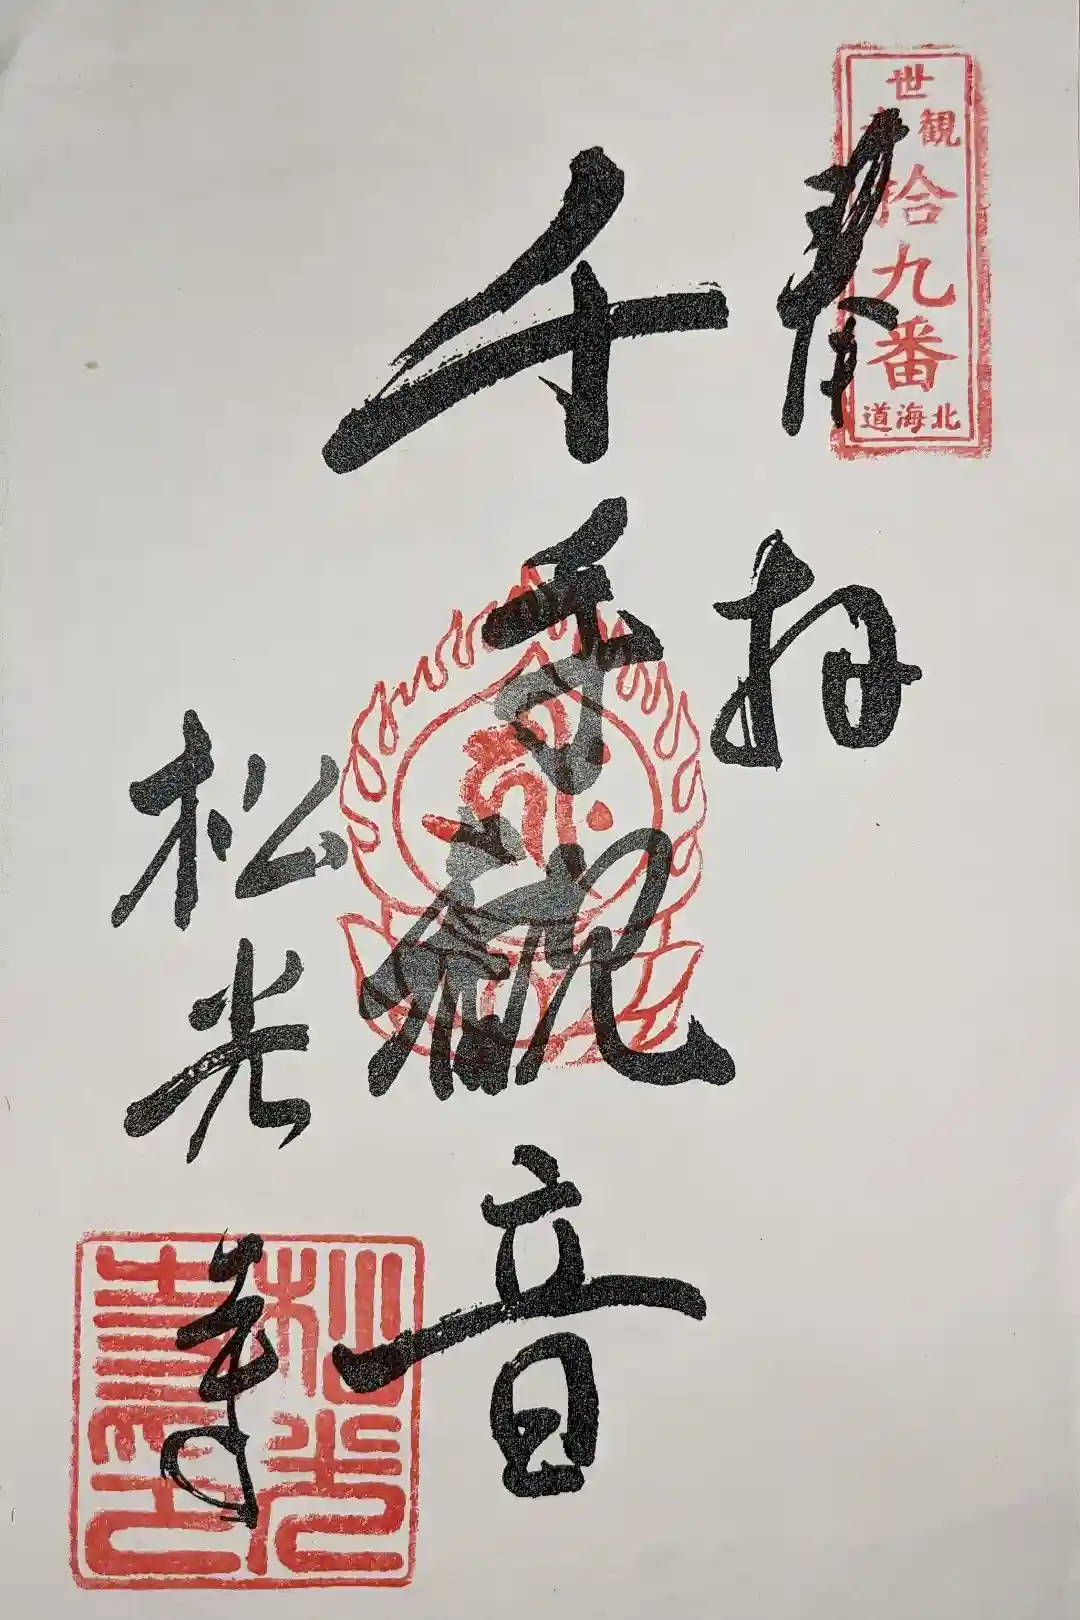 奉拝
千手観音
松光寺
世
観音
拾九番
北海道
松光寺印